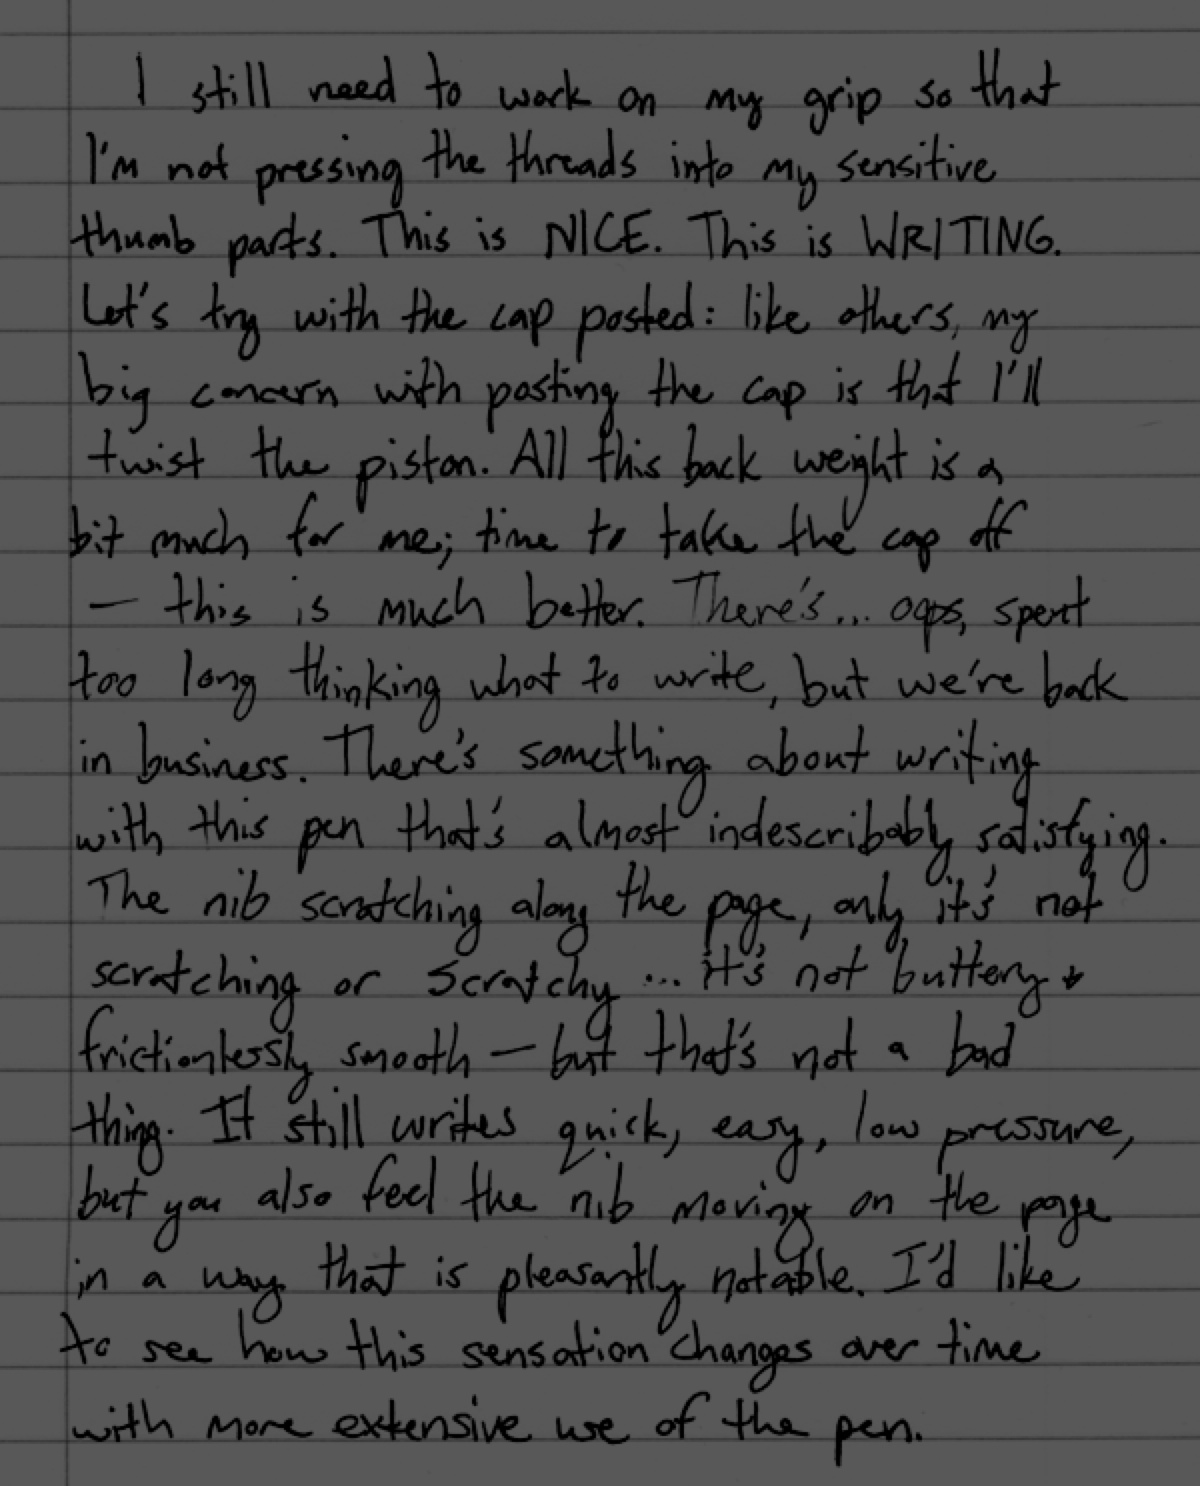 I still need to work on my grip so that
I'm not pressing the threads into my sensitive
thumb parts. This is NICE. This is WRITING.
Let's try with the cap posted: like others, my
big concern with posting the cap is that I'll
twist the piston. All this back weight is a
bit much for me; time to take the cap off
— this is much better. There's... oops, spent
too long thinking what to write, but we're back
in business. There's something about writing
with this pen that's almost indescribably satisfying.
The nib scratching along the page, only it's not
scratching or scratchy... it's not buttery +
frictionlessly smooth — but that's not a bad
thing. It still writes quick, easy, low pressure,
but you also feel the nib moving on the page
in a way that is pleasantly notable. I'd like
to see how this sensation changes over time
with more extensive use of the pen.